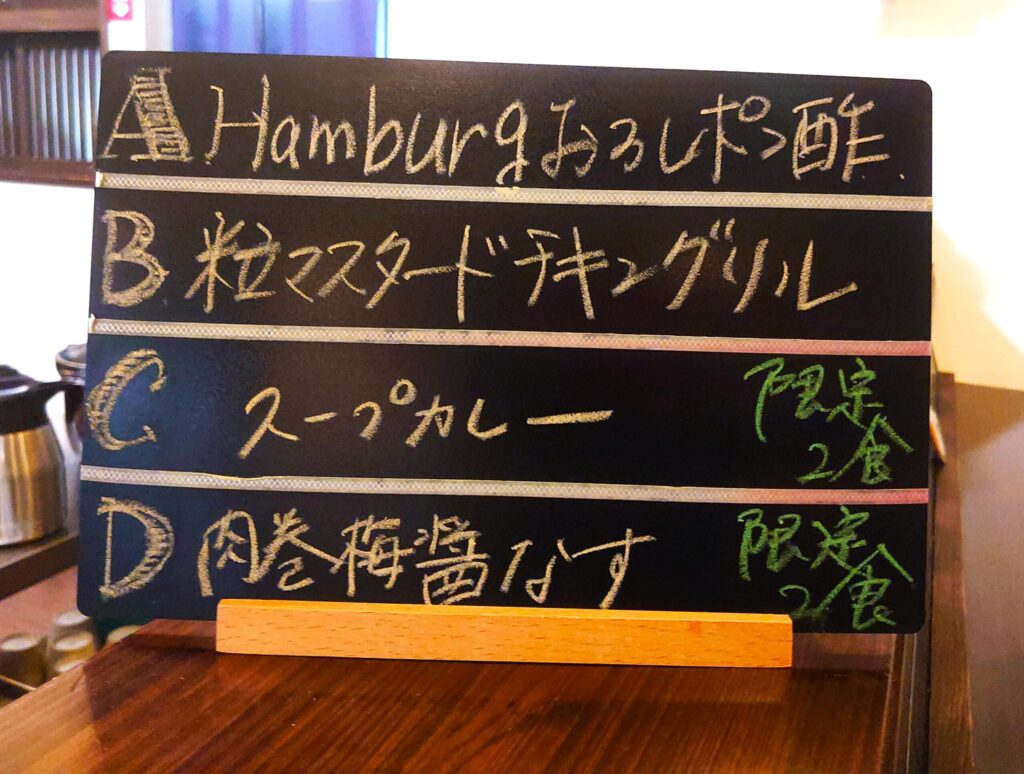 A Hamburgおろしポン酢
B 粒マスタードチキングリル
C スープカレー 限定
2食
D 肉巻梅醤なす 限定
2食